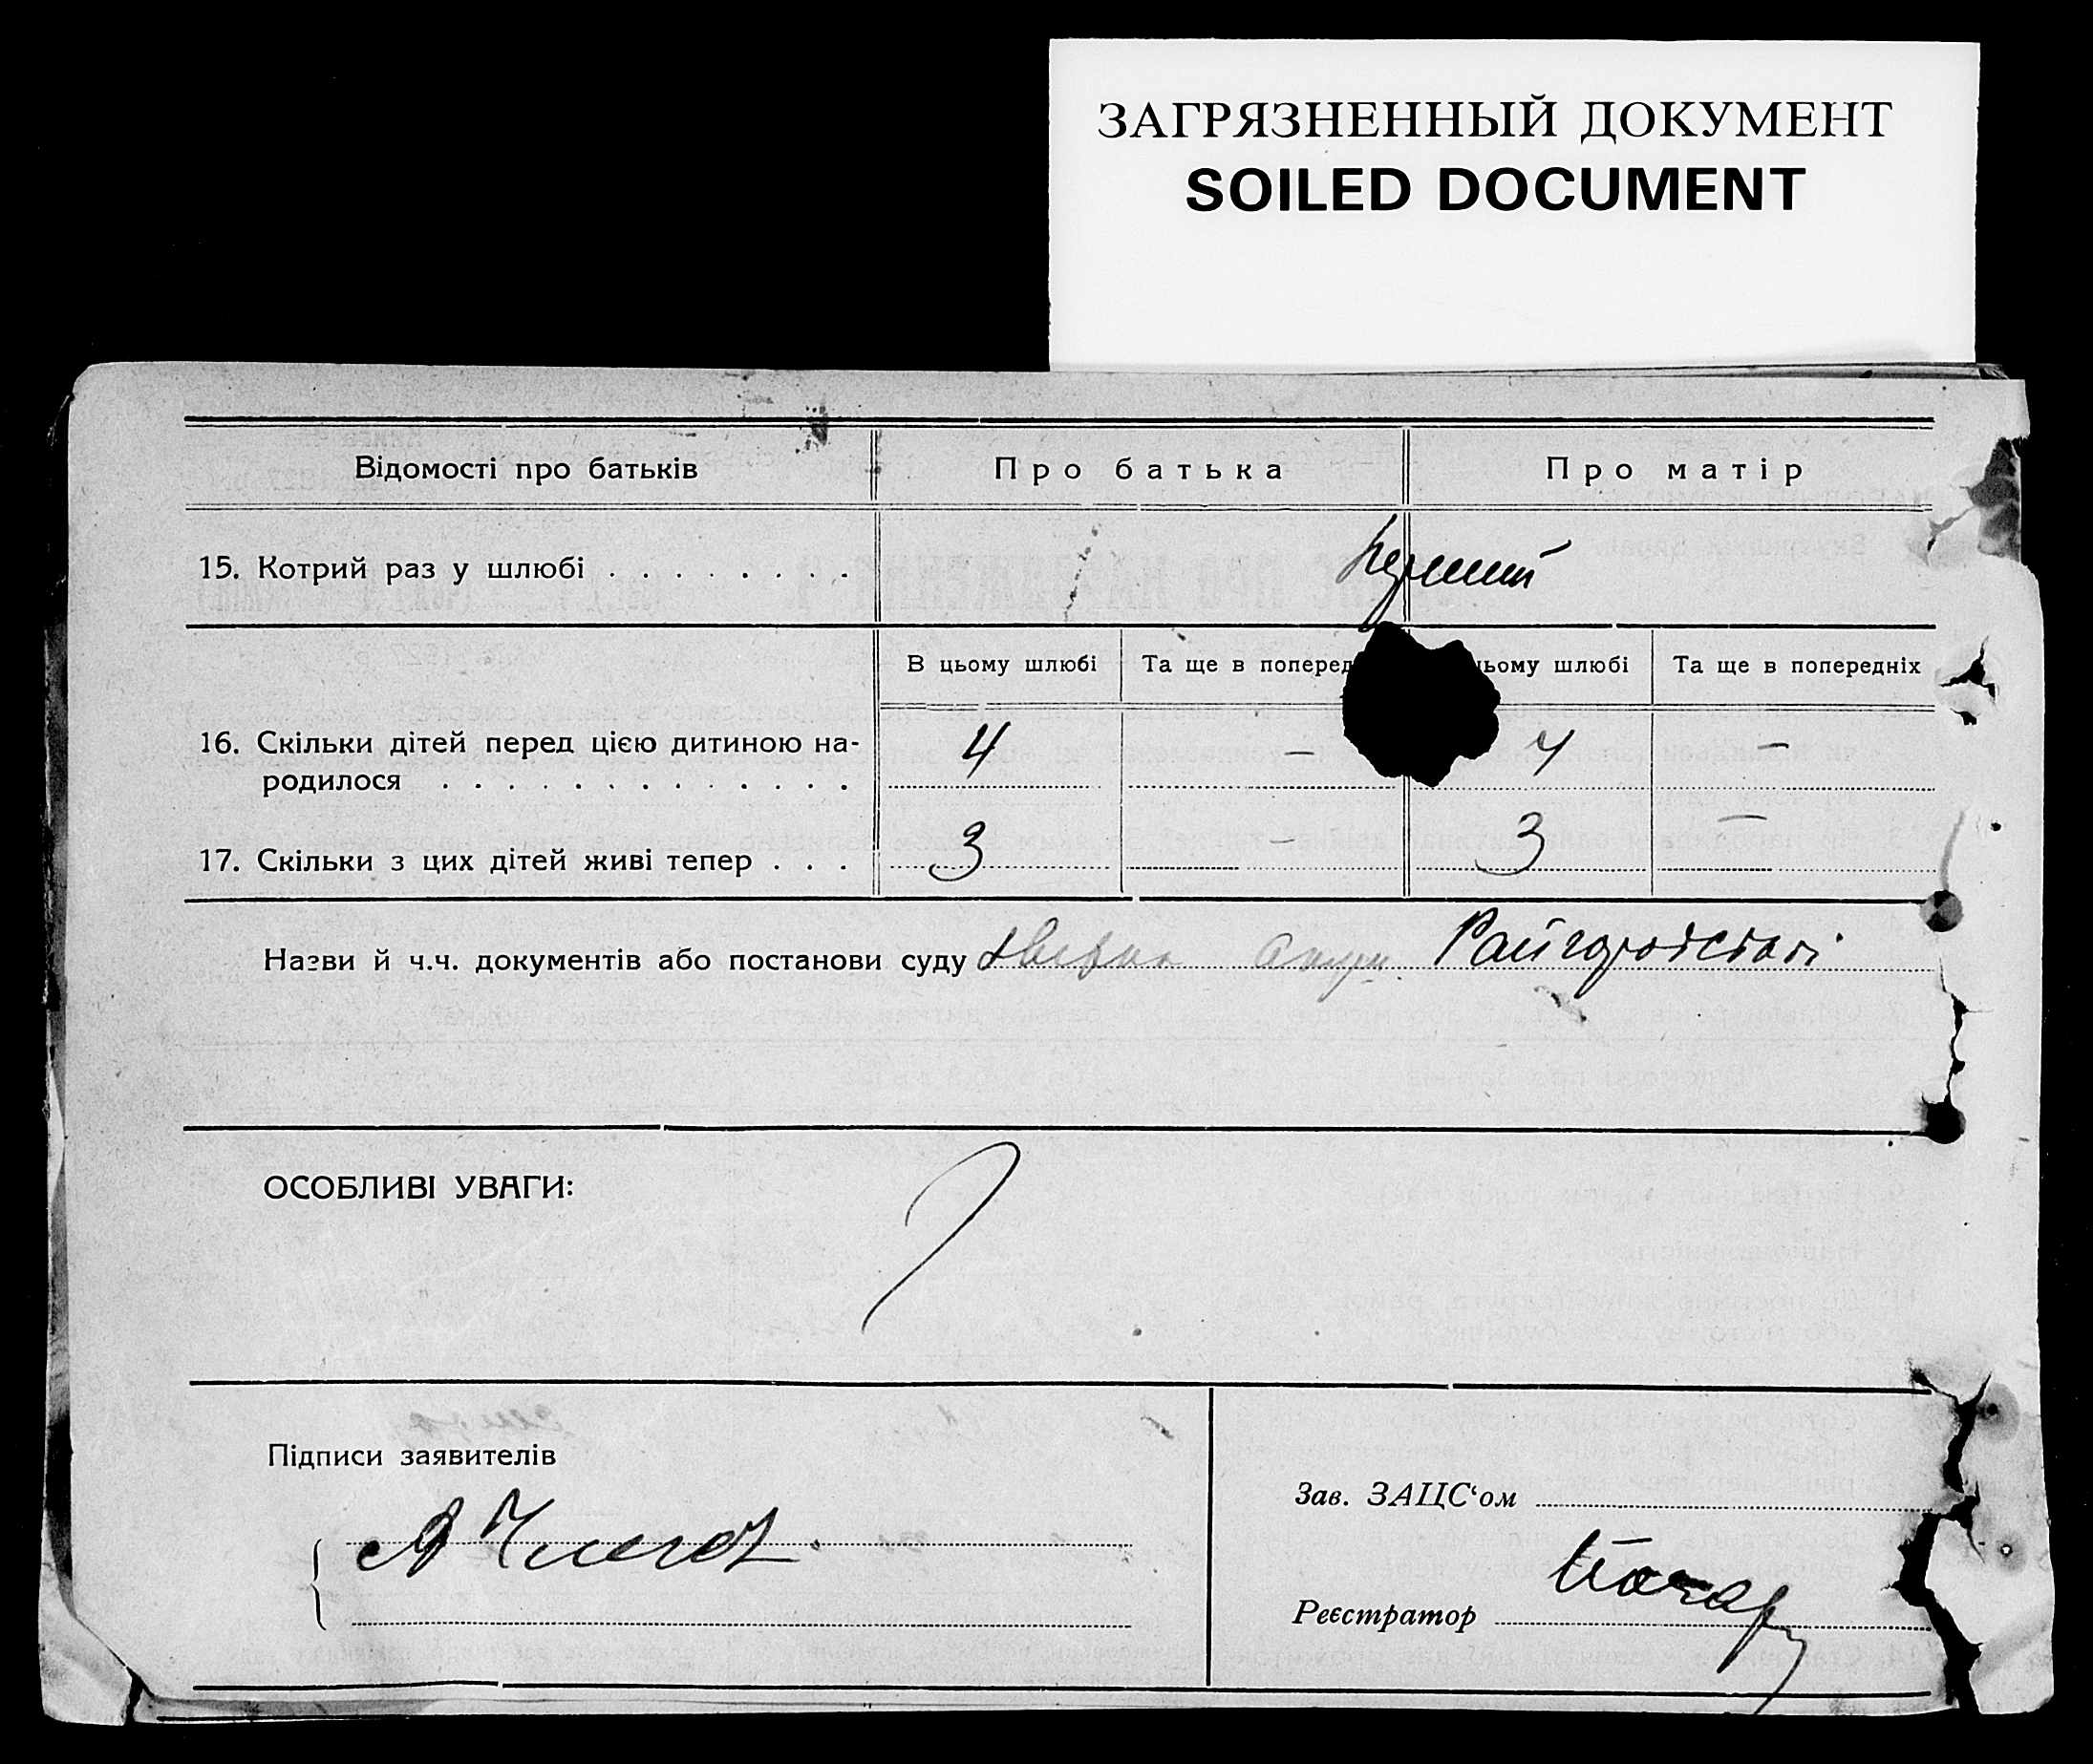 ЗАГРЯЗНЕННЫЙ ДОКУМЕНТ
SOILED DOCUMENT
Відомості про батьків Про батька Про матір
15. Котрий раз у шлюбі . . . . . . . . перший
В цьому шлюбі Та ще в поперед цьому шлюбі Та ще в попередніх
16. Скільки дітей перед цією дитиною на-
родилося . . . . . . . . . . . . . 4 — 4 —
17. Скільки з цих дітей живі тепер . . . 3 — 3 —
Назви й ч.ч. документів або постанови суду
ОСОБЛИВІ УВАГИ:
Підписи заявителів
Зав. ЗАЦС‘ом
Реєстратор